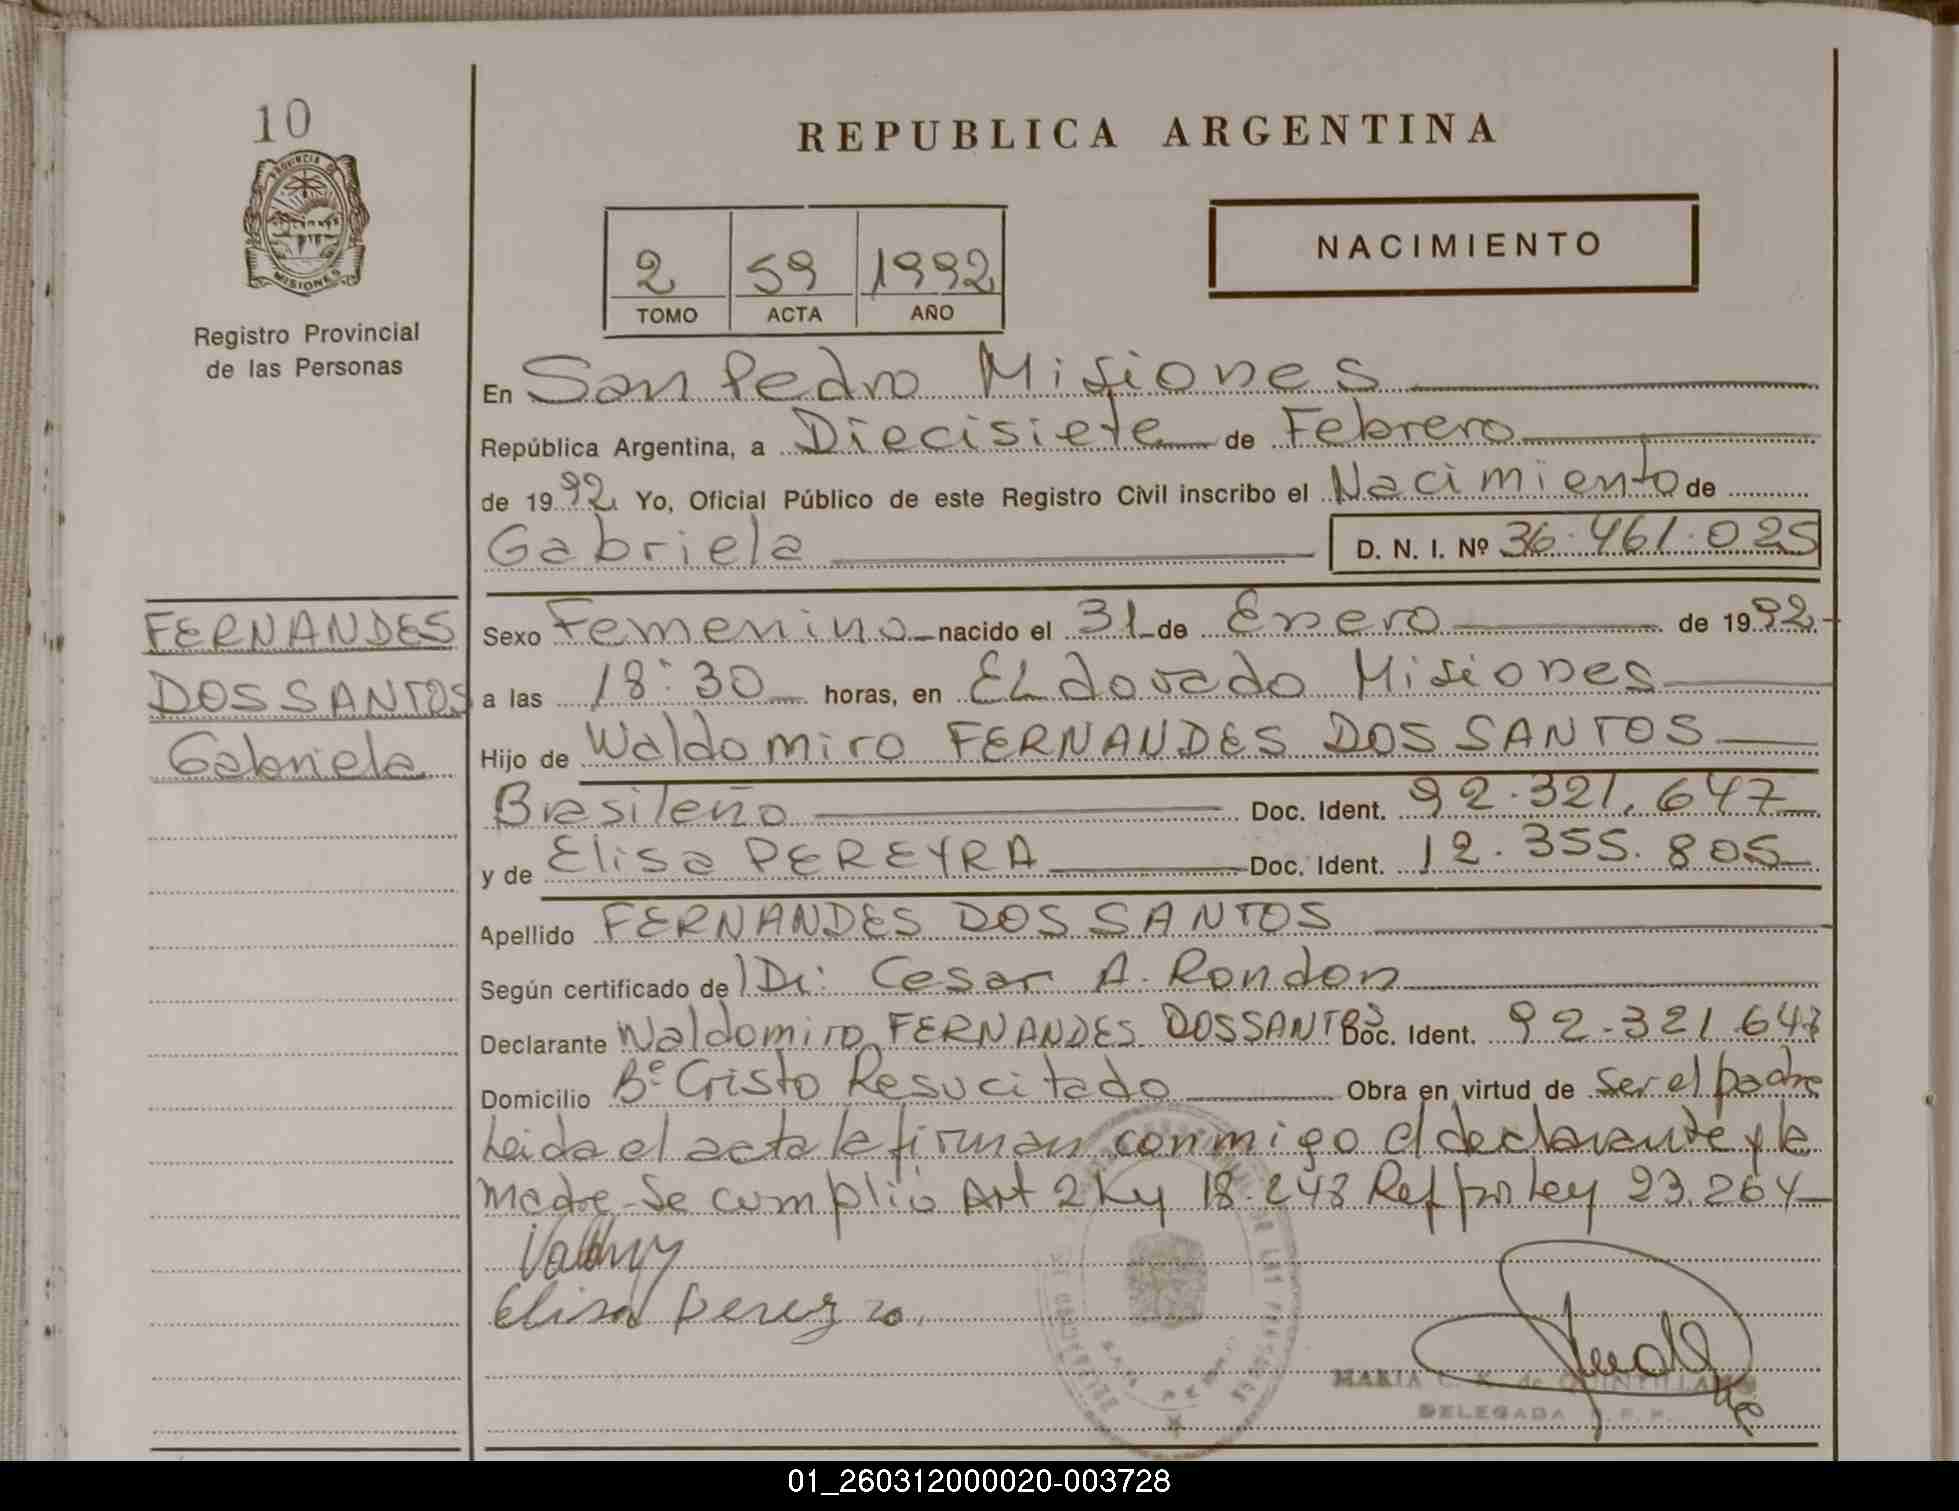 10
PROVINCIA DE
MISIONES
Registro Provincial
de las Personas
REPUBLICA ARGENTINA
2 59 1992
TOMO ACTA AÑO
NACIMIENTO
En San Pedro Misiones
República Argentina, a Diecisiete de Febrero
de 1992 Yo, Oficial Público de este Registro Civil inscribo el Nacimiento de
Gabriela D. N. I. Nº 36.461.025
FERNANDES
DOS SANTOS
Gabriela
Sexo Femenino nacido el 31 de Enero de 1992
a las 18:30 horas, en ELdorado Misiones
Hijo de Waldomiro FERNANDES DOS SANTOS
Brasileño Doc. Ident. 92.321.647
y de Elisa PEREYRA Doc. Ident. 12.355.805
Apellido FERNANDES DOS SANTOS
Según certificado de Dr: Cesar A. Rondon
Declarante Waldomiro FERNANDES DOS SANTOS Doc. Ident. 92.321.647
Domicilio Bº Cristo Resucitado Obra en virtud de Ser el padre
Leida el acta la firman conmigo el declarante y la
madre-Se cumplió Art 2 Ley 18.248 Ref por Ley 23.264
Elisa
MARIA C. K. de QUINTILLAN
DELEGADA R.P.P.
01_260312000020-003728